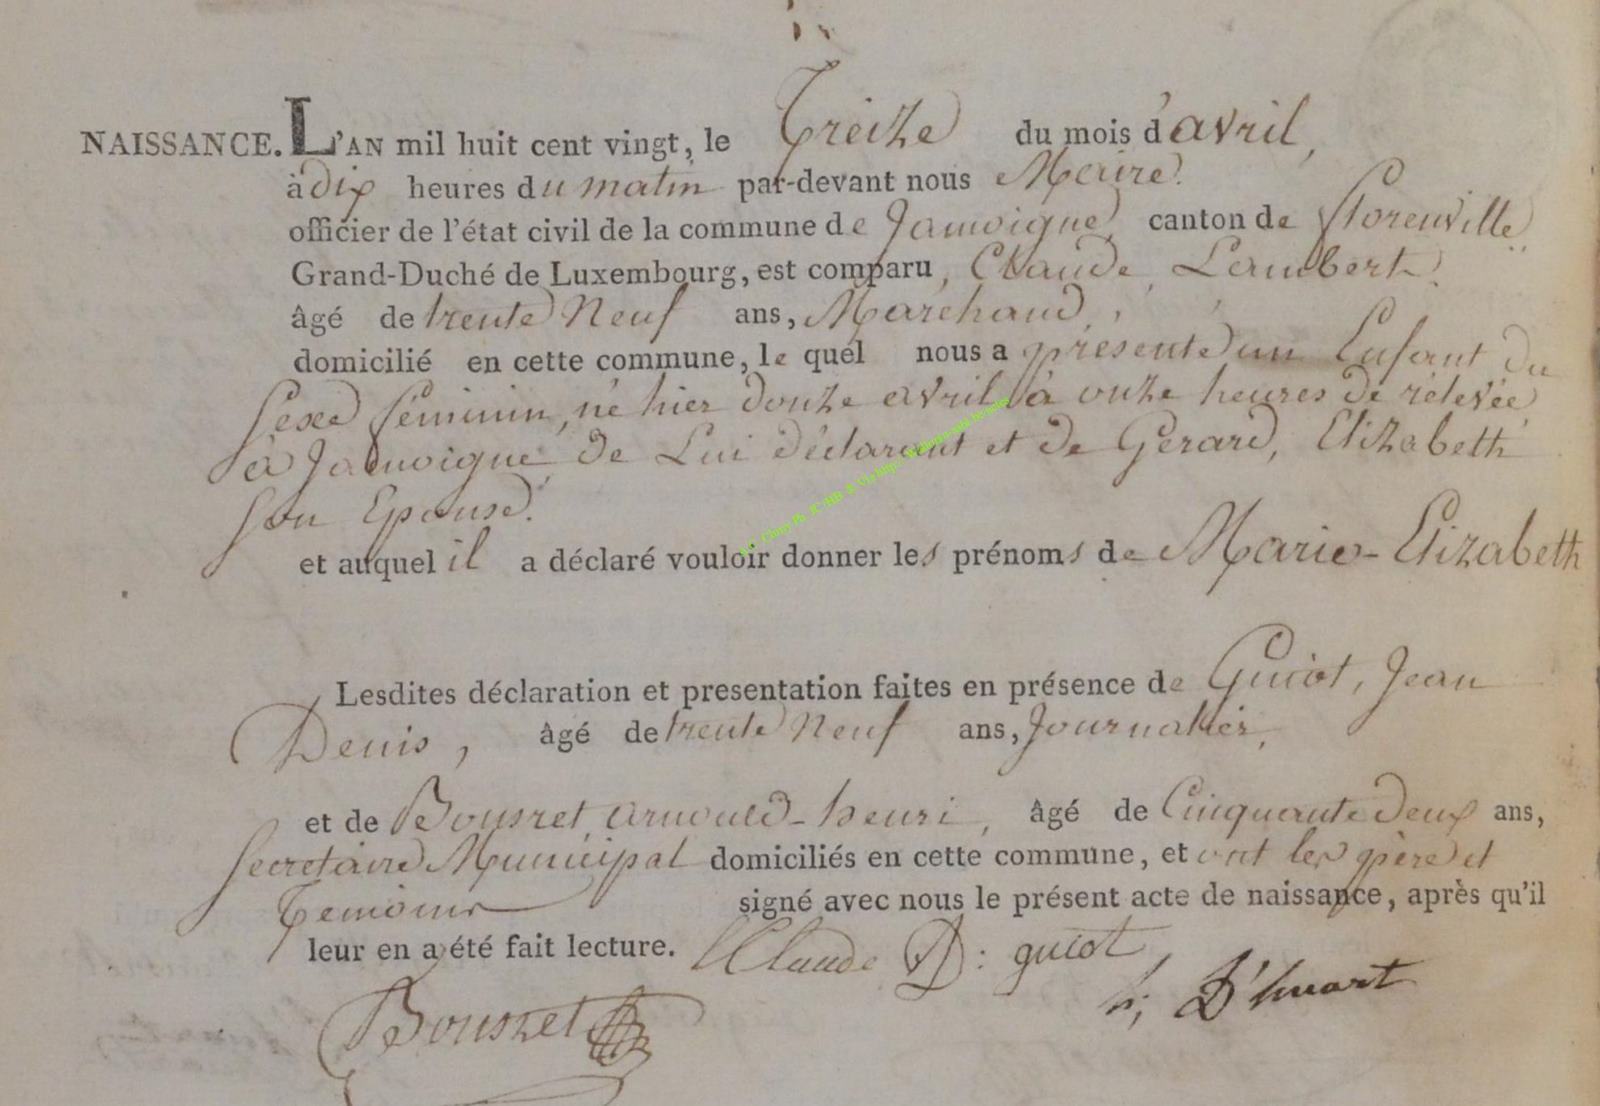 NAISSANCE. L'AN mil huit cent vingt, le Treize du mois d'avril,
à dix heures du matin par-devant nous Maire
officier de l'état civil de la commune de Jamoigne, canton de florenville
Grand-Duché de Luxembourg, est comparu, Claude, Lambert
âgé de trente Neuf ans, Marchand,
domicilié en cette commune, le quel nous a présenté un Enfant du
Sexe féminin, né hier douze avril à onze heures de relevée
à Jamoigne, de Lui déclarant et de Gerard, Elizabeth
Son Epouse.
et auquel il a déclaré vouloir donner les prénoms de Marie-Elizabeth
Lesdites déclaration et presentation faites en présence de Guiot, Jean
Denis, âgé de trente Neuf ans, Journalier,
et de Bousret, arnould-henri, âgé de Cinquante deux ans,
Secretaire Municipal domiciliés en cette commune, et ont les père et
Temoins signé avec nous le présent acte de naissance, après qu'il
leur en a été fait lecture. Claude D: guiot
h; D'huart
Bousret